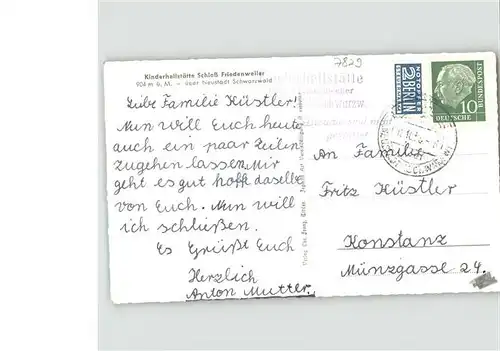 7829
Kinderheilstätte Schloß Friedenweiler
904 m ü. M. - über Neustadt Schwarzwald
NOTOPFER
2 BERLIN
STEUERMARKE
10
DEUTSCHE BUNDESPOST
Kinderheilstätte
Liebe Familie Hüstler!
Nun will Euch heute
auch ein paar Zeilen
zugehen lassen. Mir
geht es gut hoffe daselbe
von Euch. Nun will
ich schließen.
Es Grüßt Euch
Herzlich
Anton Mutter.
An Familie
Fritz Hüstler
Konstanz
Münzgasse 24.